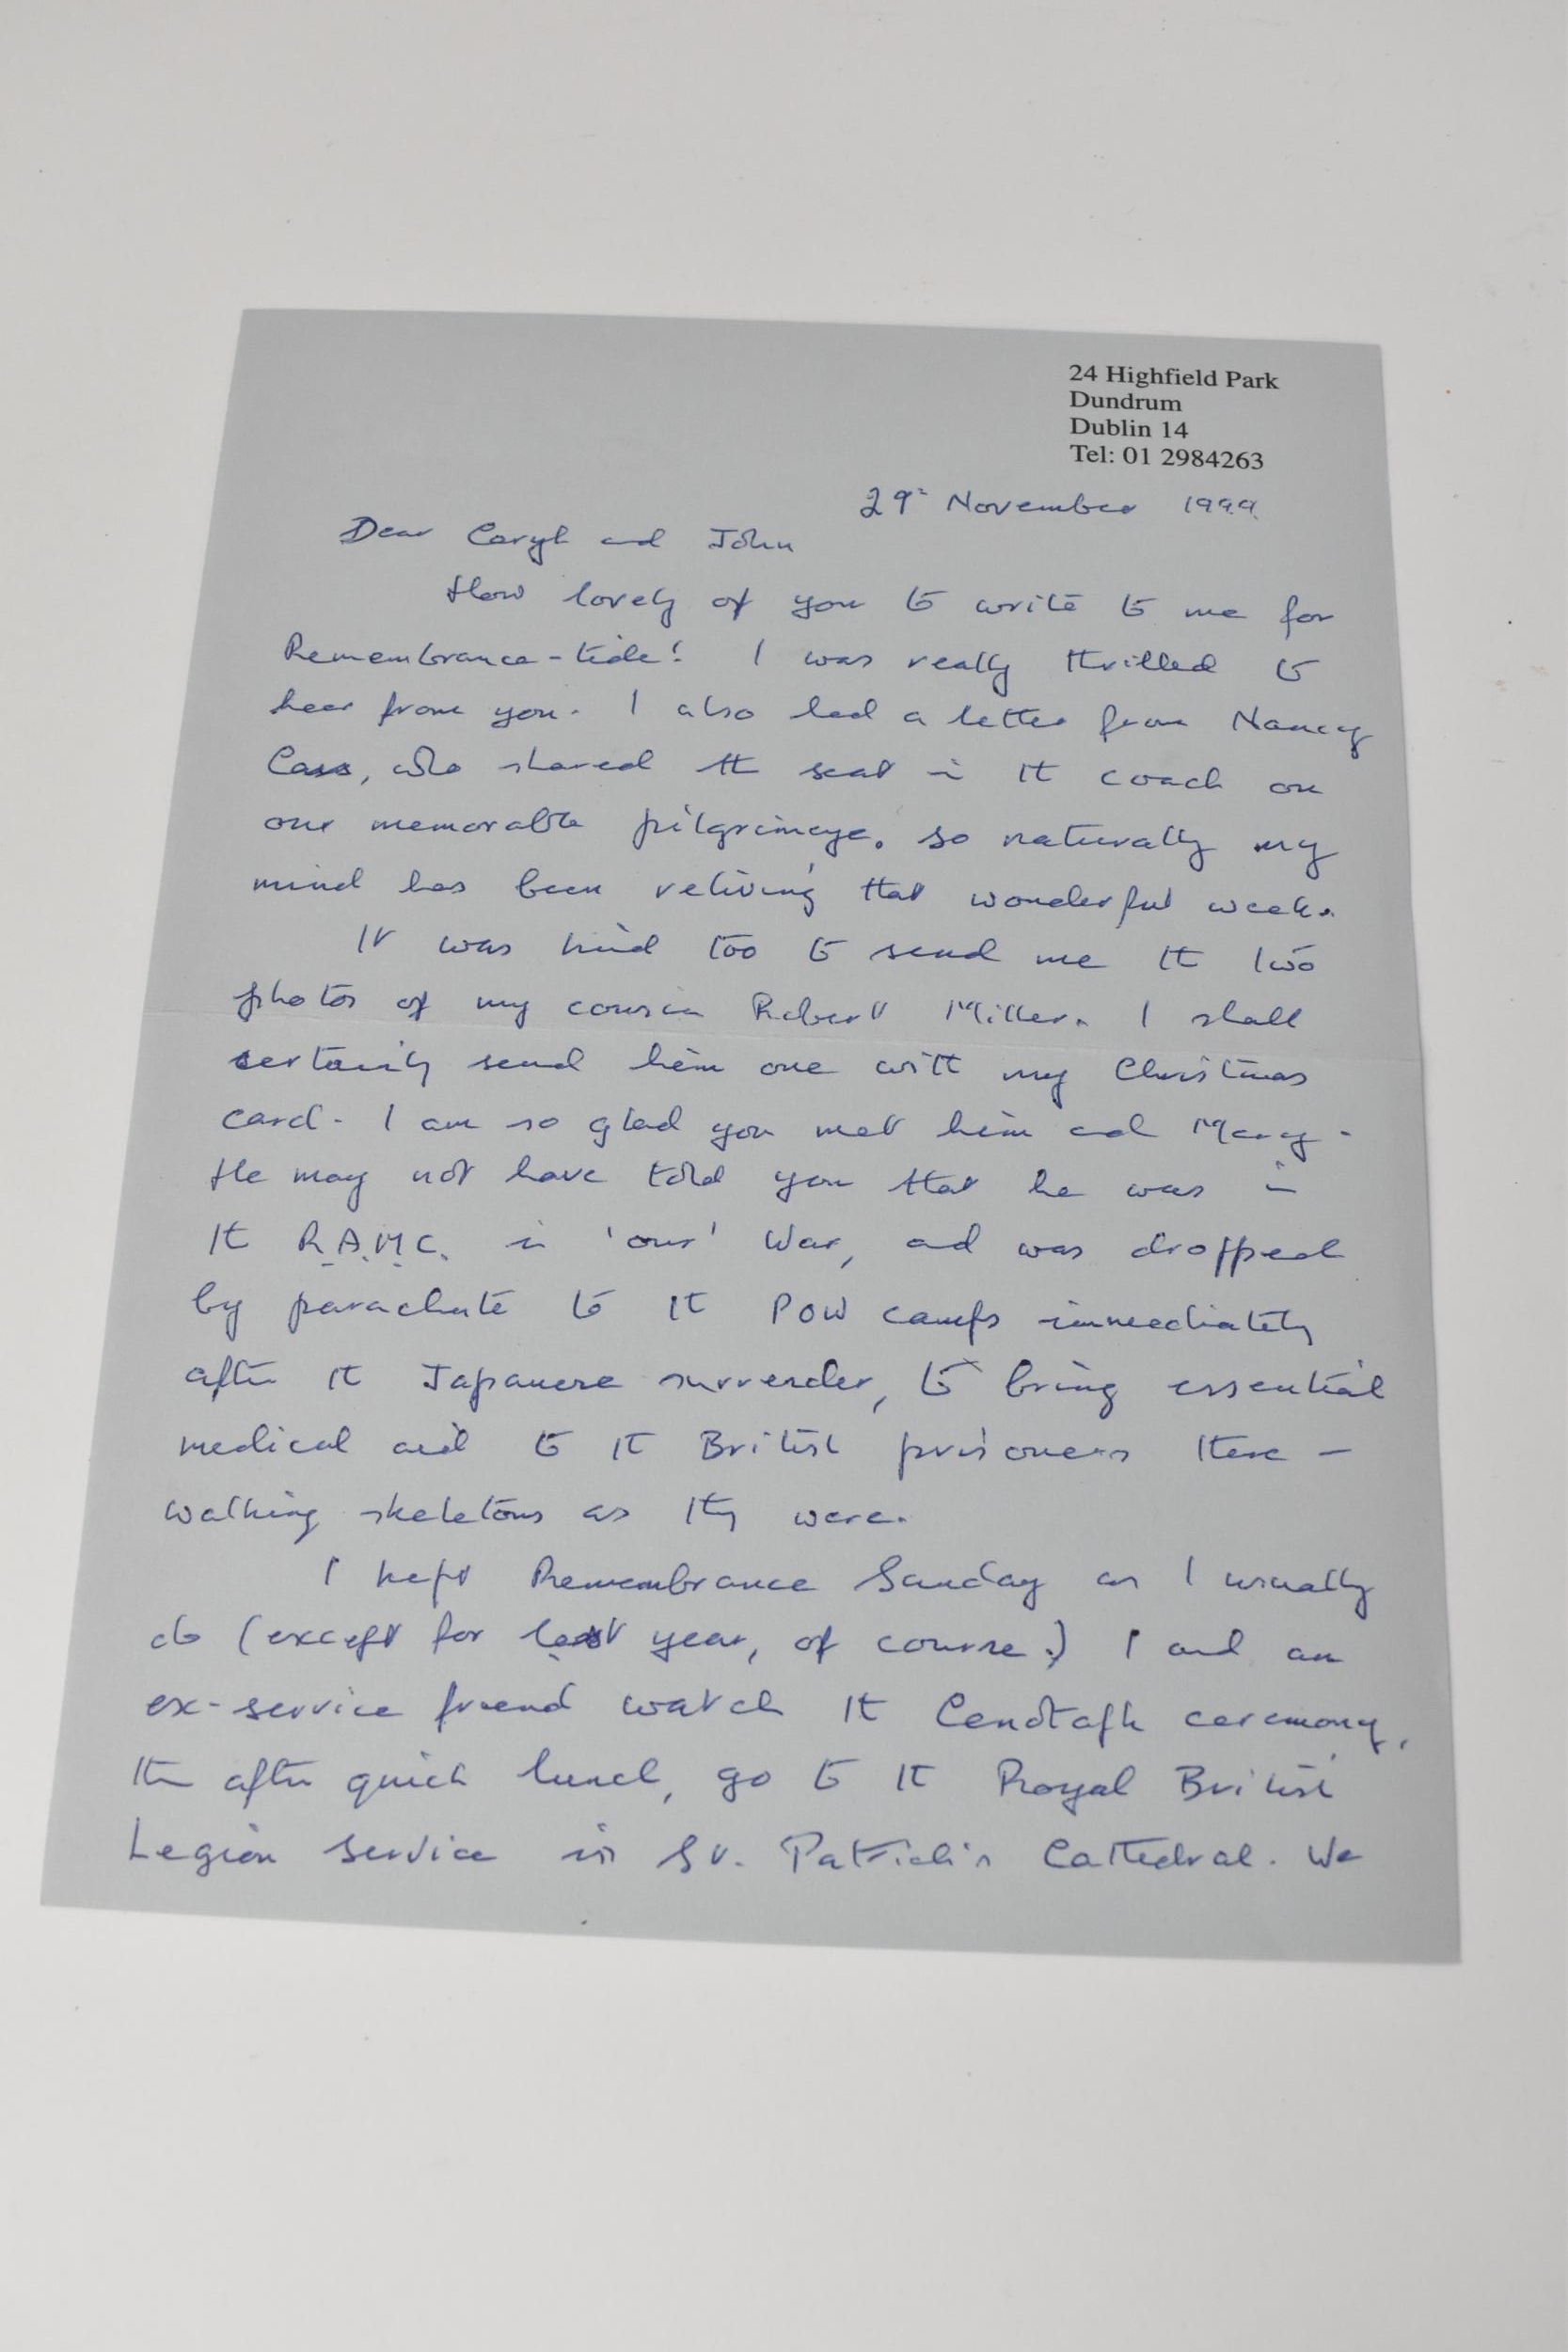 24 Highfield Park
Dundrum
Dublin 14
Tel: 01 2984263
29th November 1999.
Dear Caryl and John
How lovely of you to write to me for
Remembrance-tide! I was really thrilled to
hear from you. I also had a letter from Nancy
Cass, who shared the seat in the coach on
our memorable pilgrimage, so naturally my
mind has been reliving that wonderful week.
It was kind too to send me the two
photos of my cousin Robert Miller. I shall
certainly send him one with my Christmas
card. I am so glad you met him and Mary.
He may not have told you that he was in
the R.A.M.C. in 'our' War, and was dropped
by parachute to the POW camps immediately
after the Japanese surrender, to bring essential
medical aid to the British prisoners there -
walking skeletons as they were.
I kept Remembrance Sunday as I usually
do (except for last year, of course!) I and an
ex-service friend watch the Cenotaph ceremony,
then after quick lunch, go to the Royal British
Legion service in St. Patrick's Cathedral. We